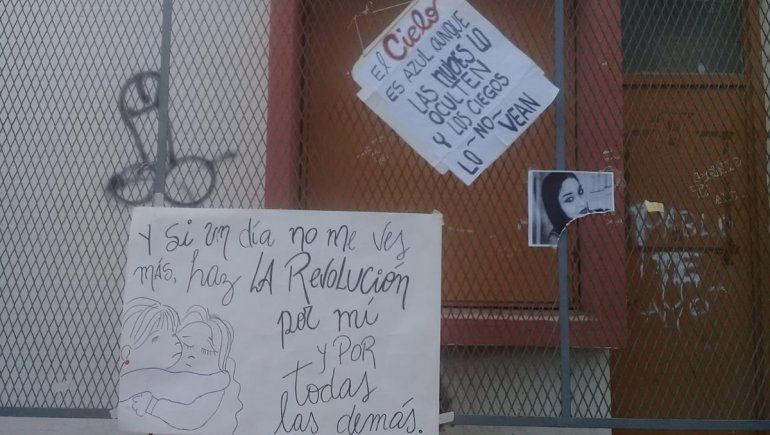 El Cielo
ES AZUL AUNQUE
LAS NUBES LO
OCULTEN
Y LOS CIEGOS
LO ~ NO ~
VEAN
Y Si un día no me ves
MÁS, haz LA REVOLUCIÓN
por mí
y POR
todas
las demás.
PABLI
TE
AMO